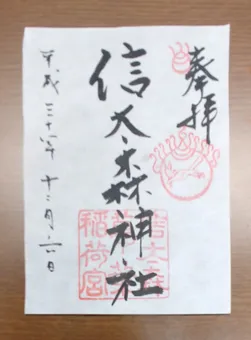 奉拝
信太森神社
平成三十年 十二月 六日
信太森
葛葉
稲荷宮